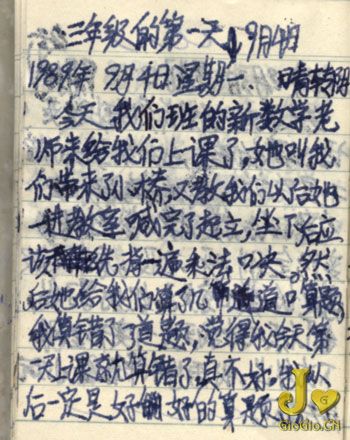 三年级的第一天 9月4日
1989年9月4日星期一. 晴转阴
今天我们班的新数学老
师来给我们上课了,她叫我
们带来了小棒,又教我们以后她
一进教室喊完了起立,坐下后应
该先背一遍乘法口决。然
后她给我们算了几道口算题,
我算错了1道题,觉得我今天第
一天上课就算错了真不好。我以
后一定是好好的算题
J
GIOGIO.CN